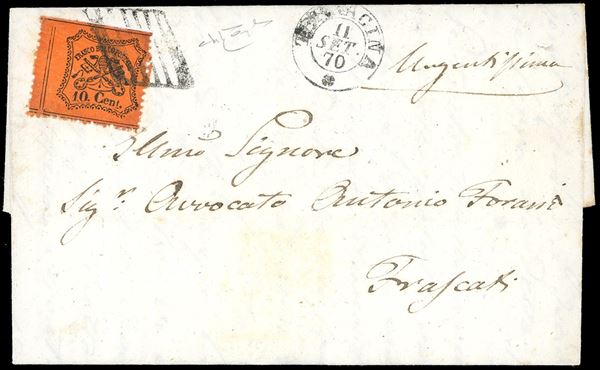 FRANCO BOLLO POST
10. Cent.
TERRACINA
11
SET
70
Urgentissima
Illmo Signore
Sigr. Avvocato Antonio Forani
Frascati